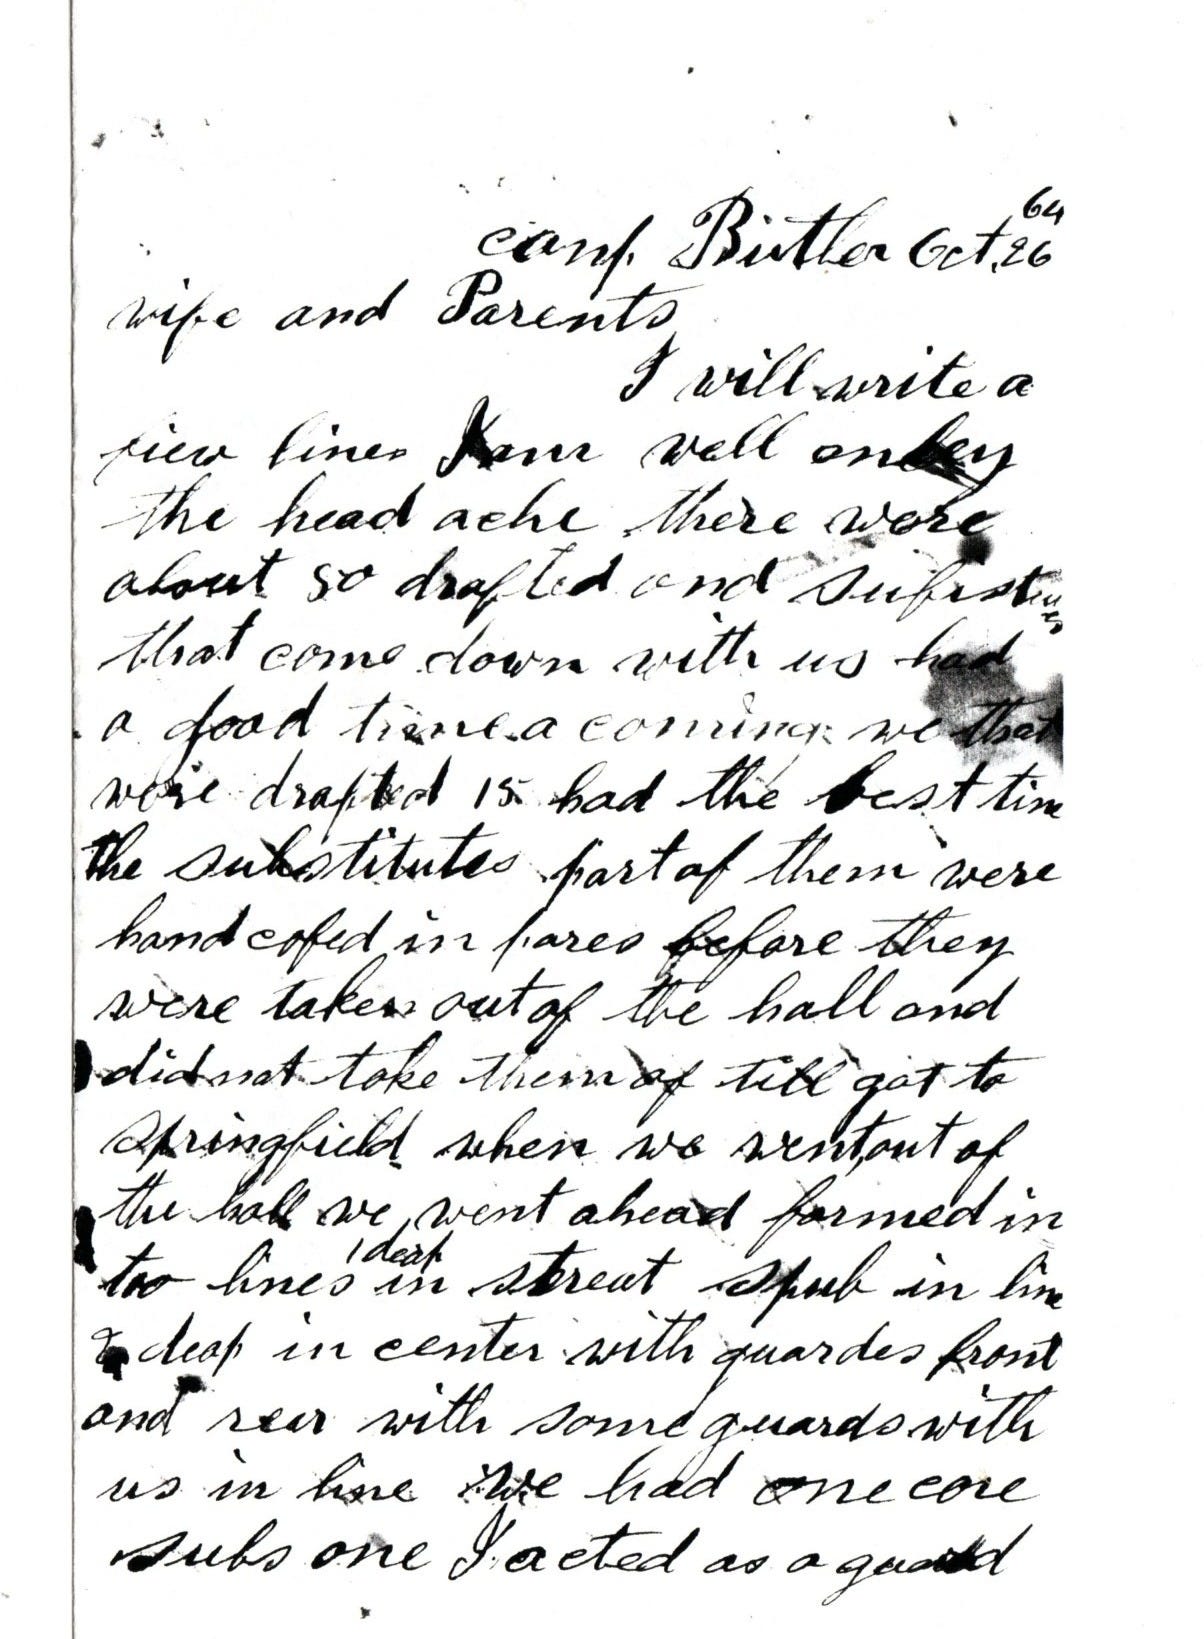 camp Butler Oct. 26 64
wife and Parents
I will write a
view lines I am well onley
the head ache there were
about 50 drafted and
that come down with us had
a good time a coming we that
were drafted 15 had the best time
the substitutes part of them were
hand cofed in pares before they
were taken out of the hall and
did not take them of till got to
Springfield when we went out of
the hall we went ahead formed in
too lines 1 deap in streat in line
2 deap in center with guardes front
and rear with some guards with
us in line we had one core
subs one I acted as a guard